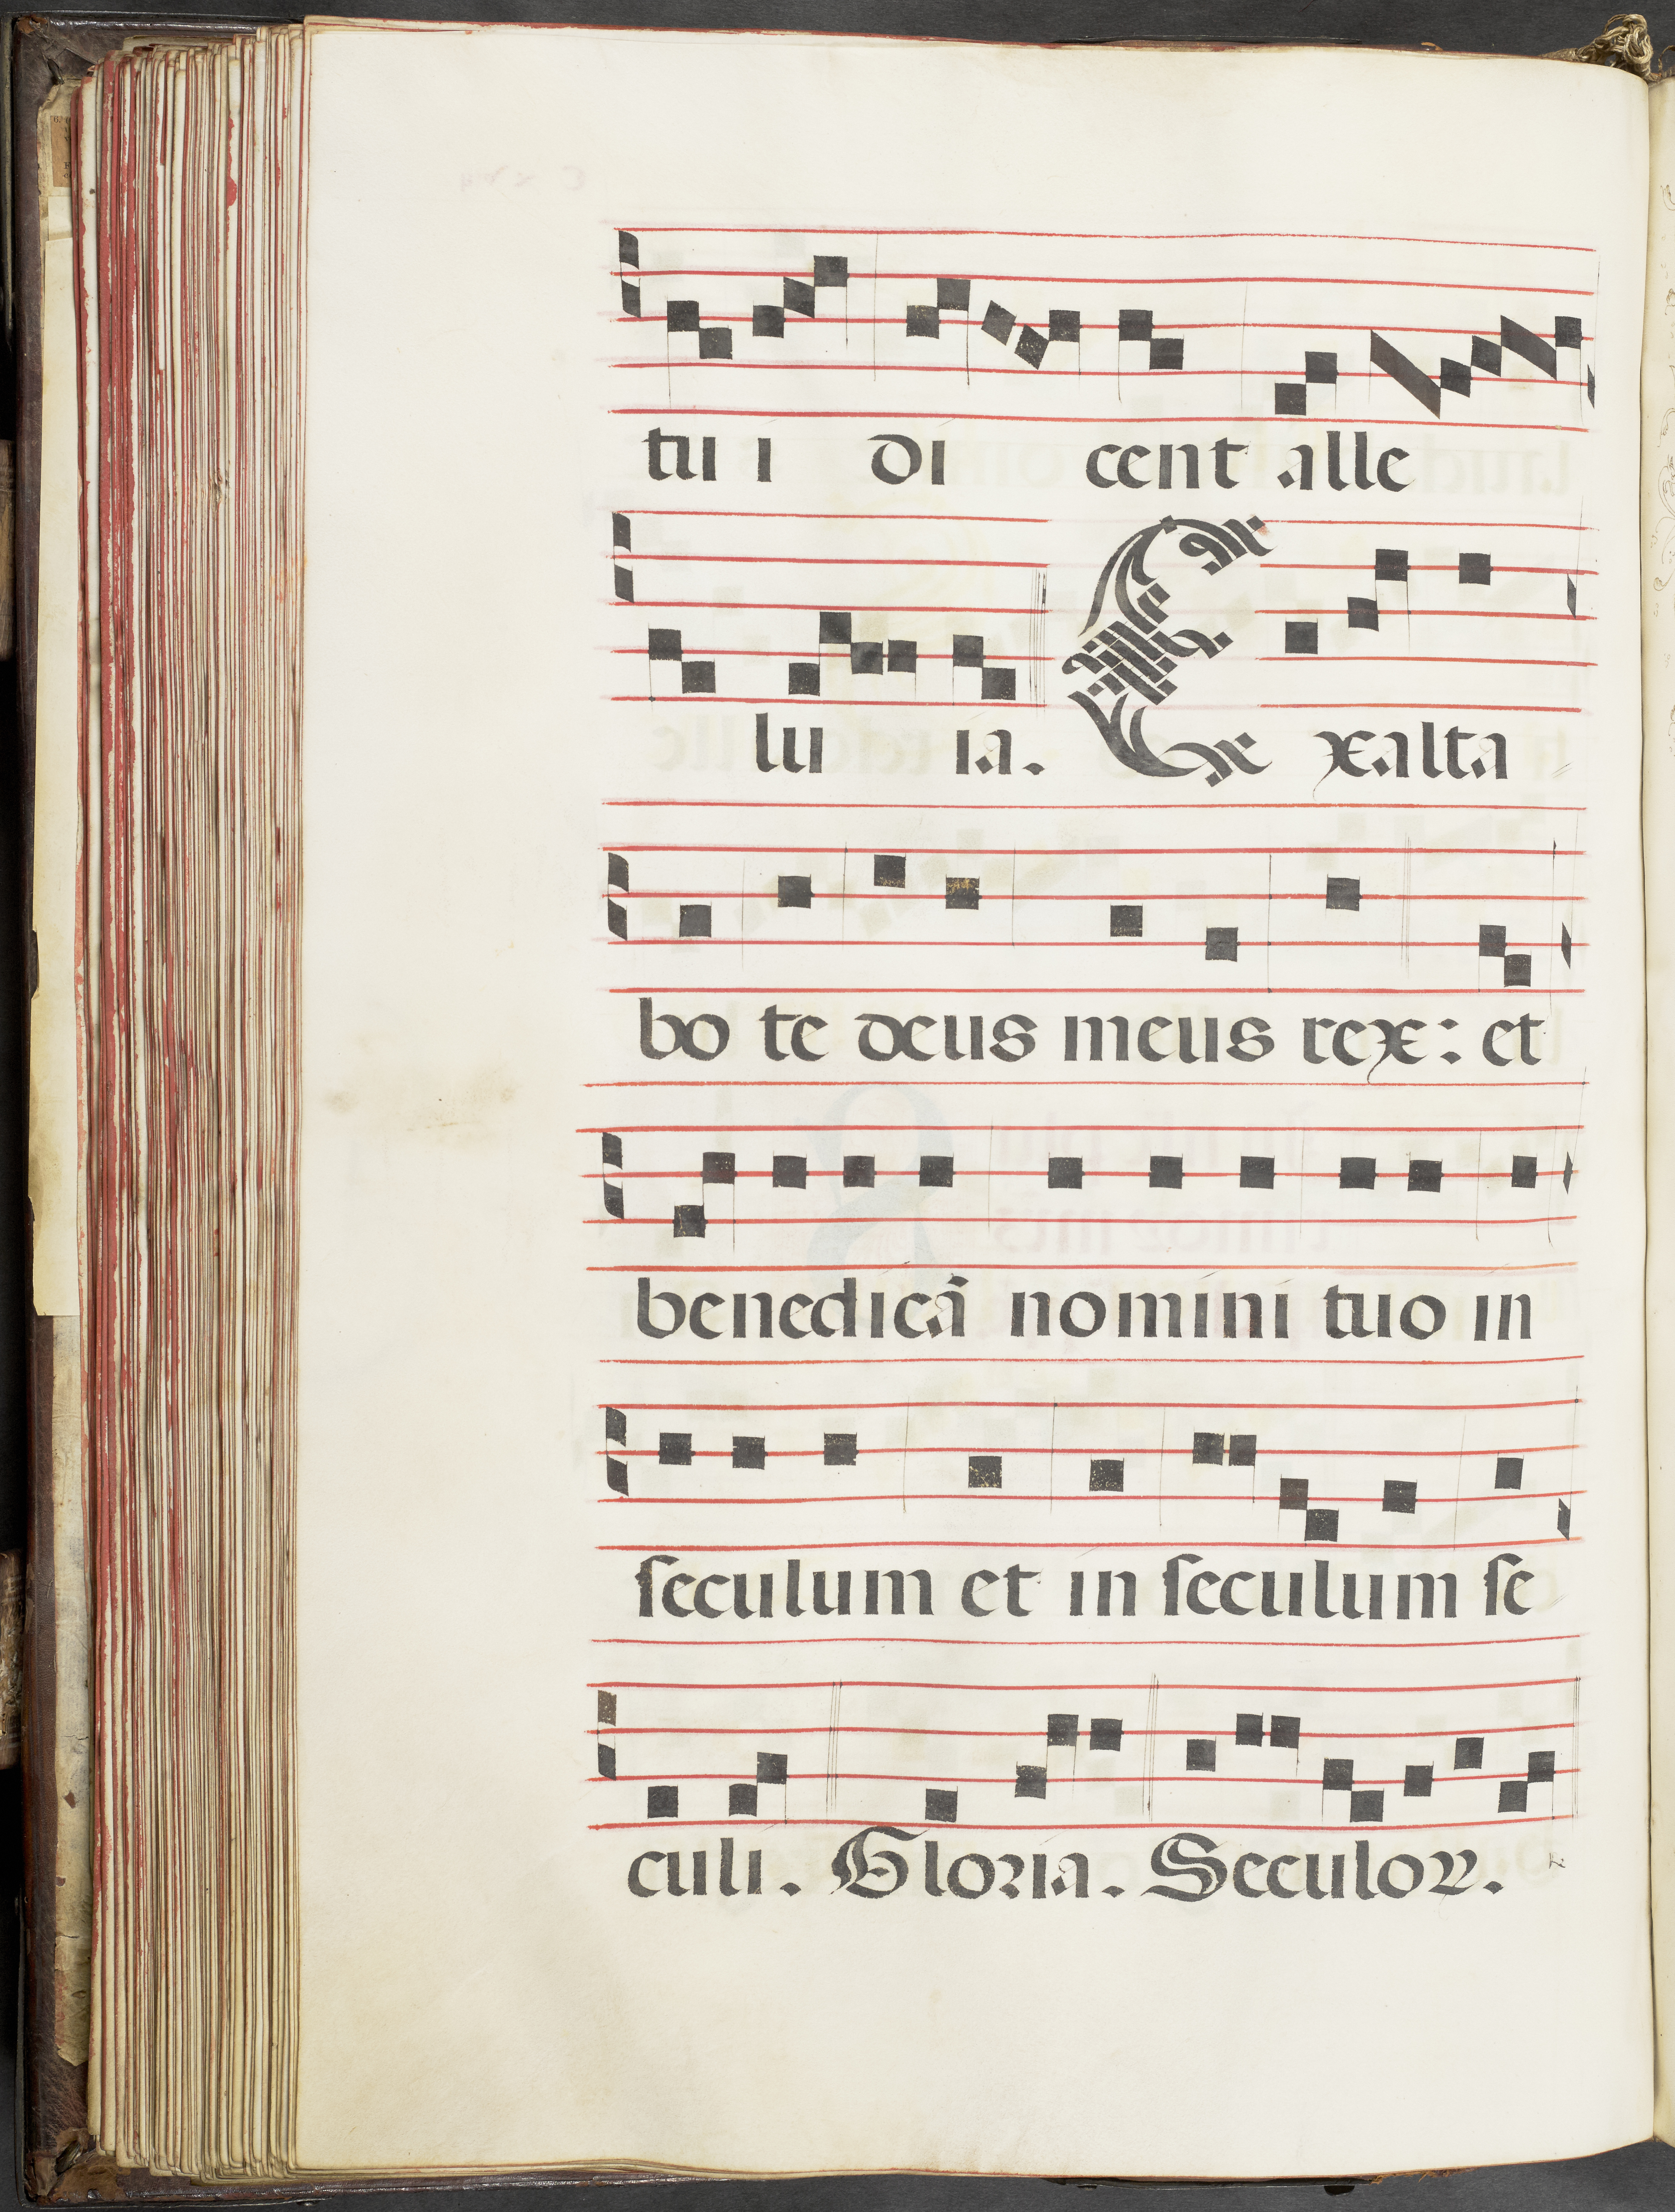 tu i di cent alle
lu ia. Exalta
bo te deus meus rex: et
benedicã nomini tuo in
ſeculum et in ſeculum ſe
culi. Gloꝛia. Seculoꝝ.